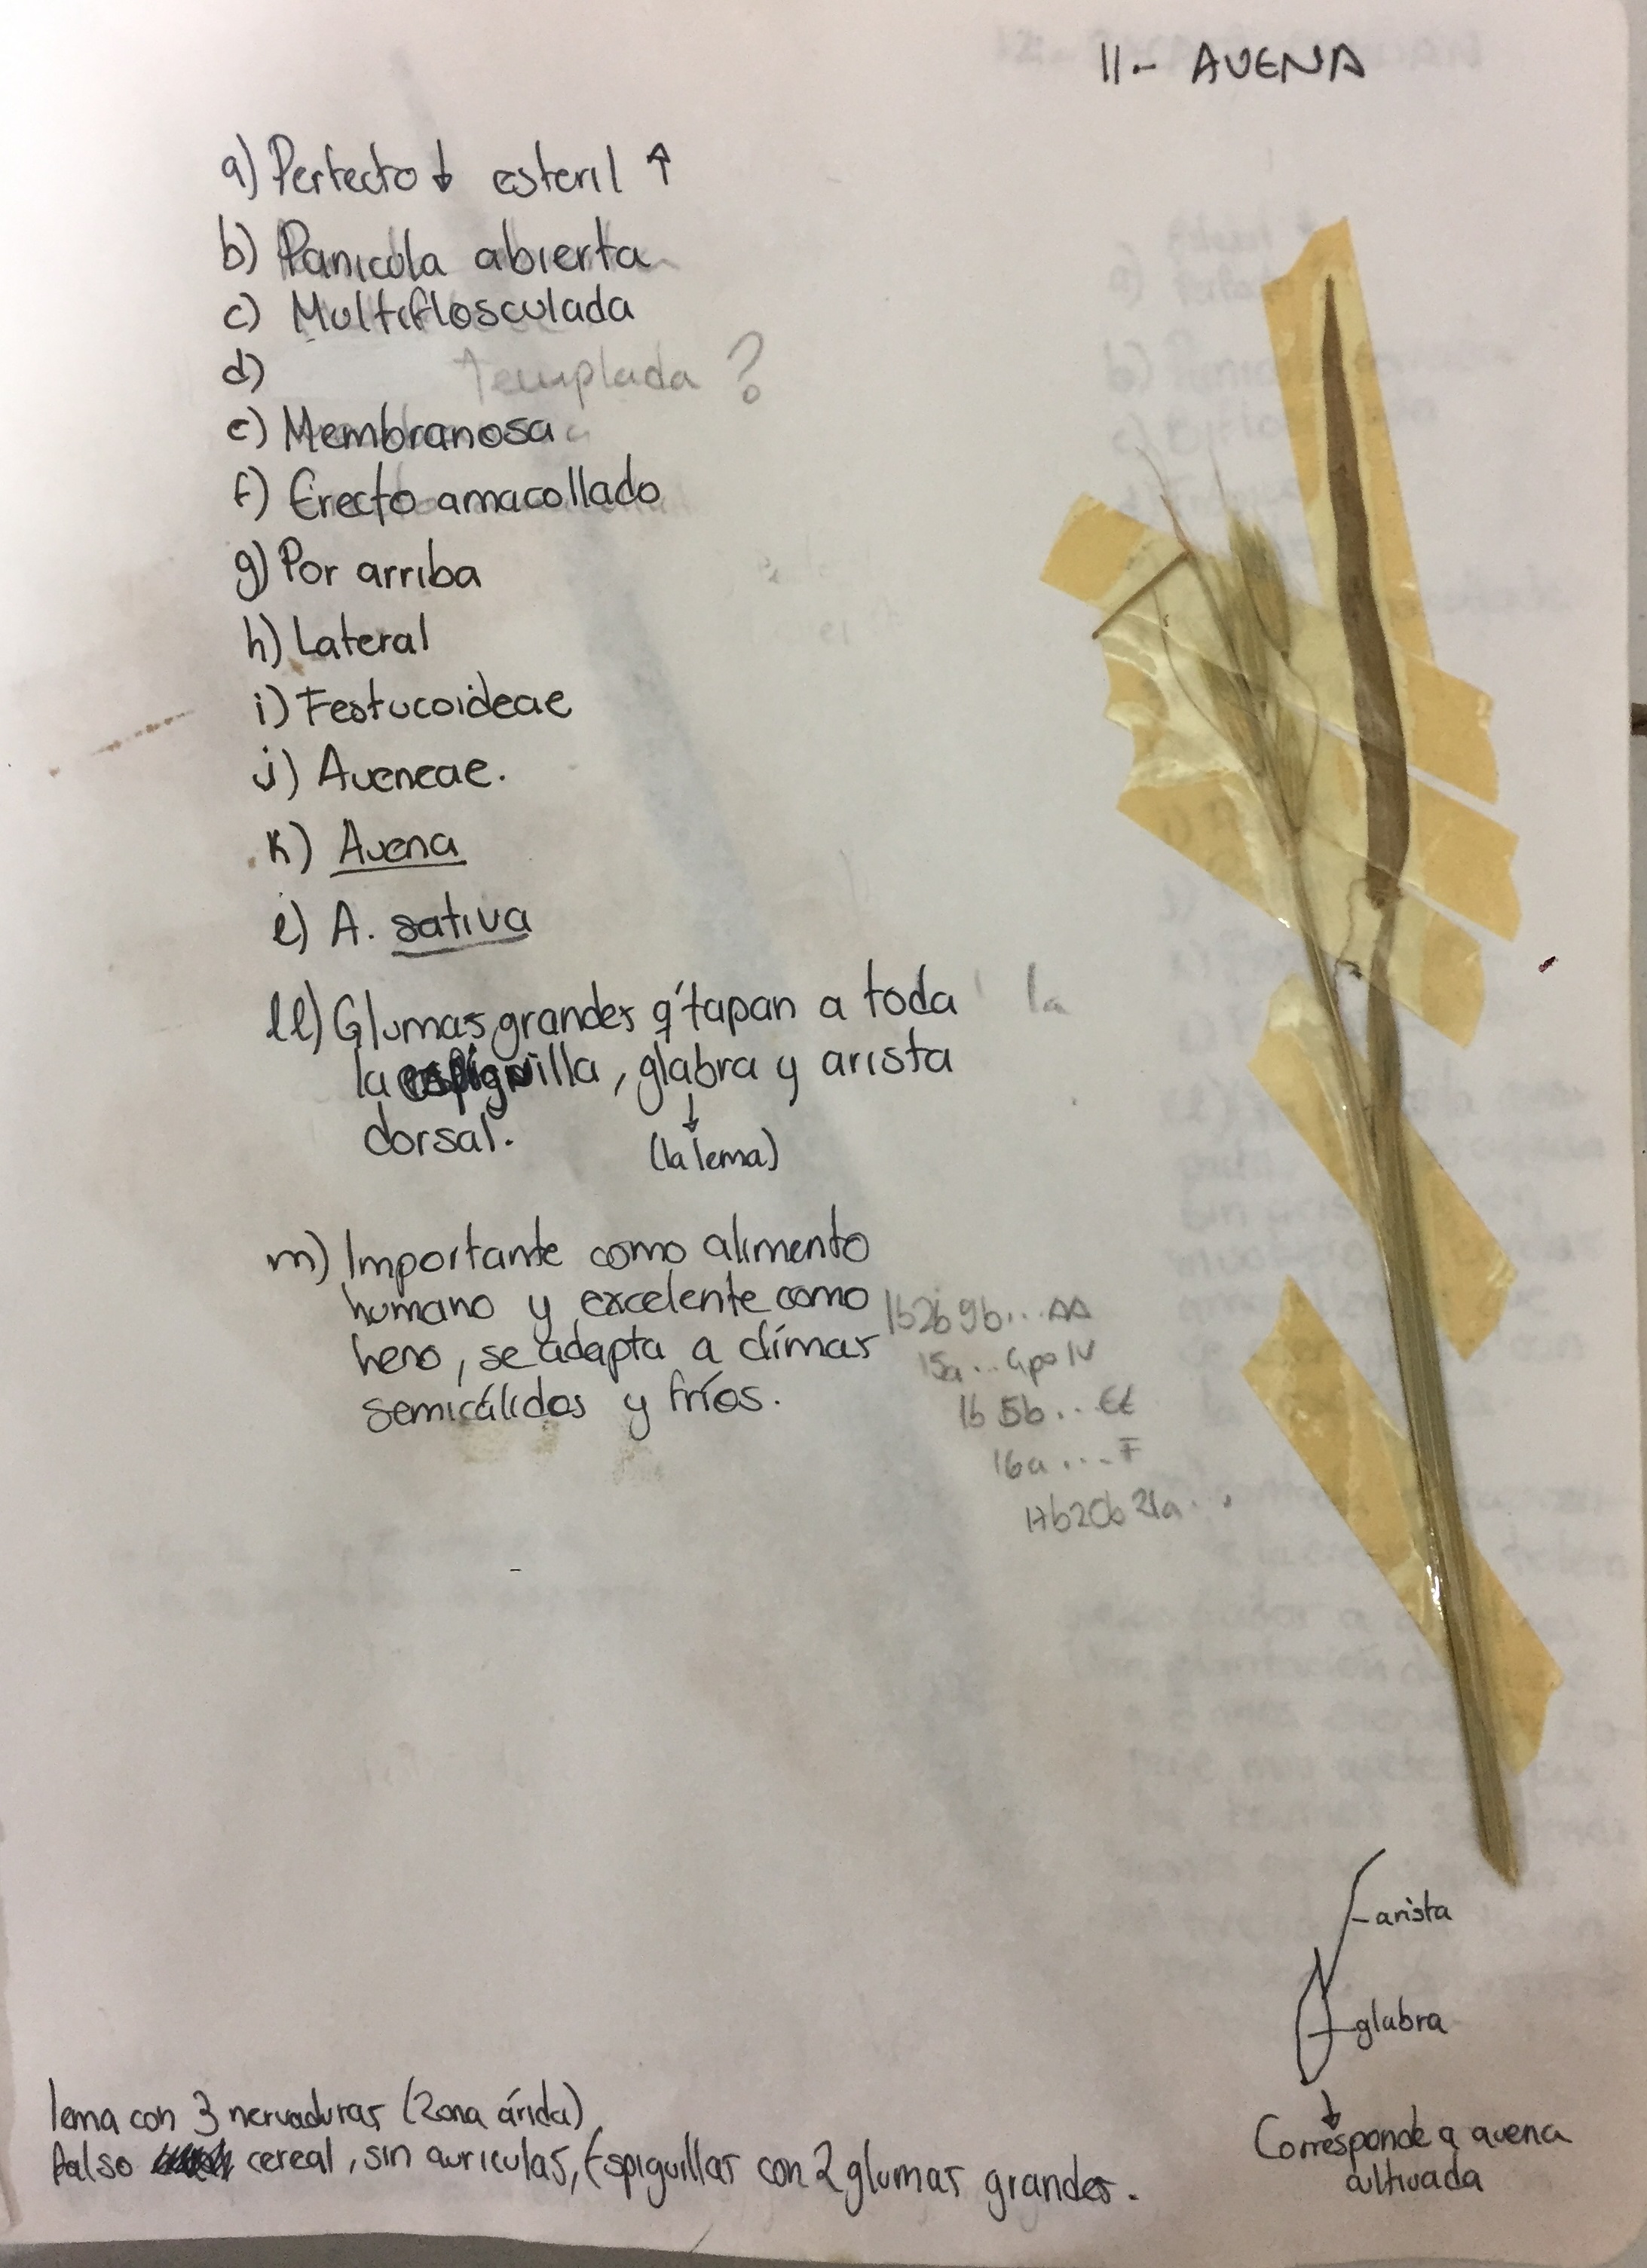 11.- AVENA
a) Perfecto ↓ esteril ↑
b) Panicola abierta
c) Multiflosculada
d) Templada ?
e) Membranosa
f) Erecto amacollado
g) Por arriba
h) Lateral
i) Festucoideae
j) Aveneae.
k) Avena
l) A. sativa
ll) Glumas grandes q' tapan a toda la
la espiguilla, glabra y arista
dorsal. (la lema)
m) Importante como alimento
humano y excelente como
heno, se adapta a climas
semicálidos y fríos.
1b2b9b... AA
15a... Gpo IV
1b 5b... EE
16a.... F
17b20b21a...
arista
glabra
Corresponde a avena
cultivada
lema con 3 nervaduras (Zona árida)
falso cereal, sin auriculas, Espiguillas con 2 glumas grandes.